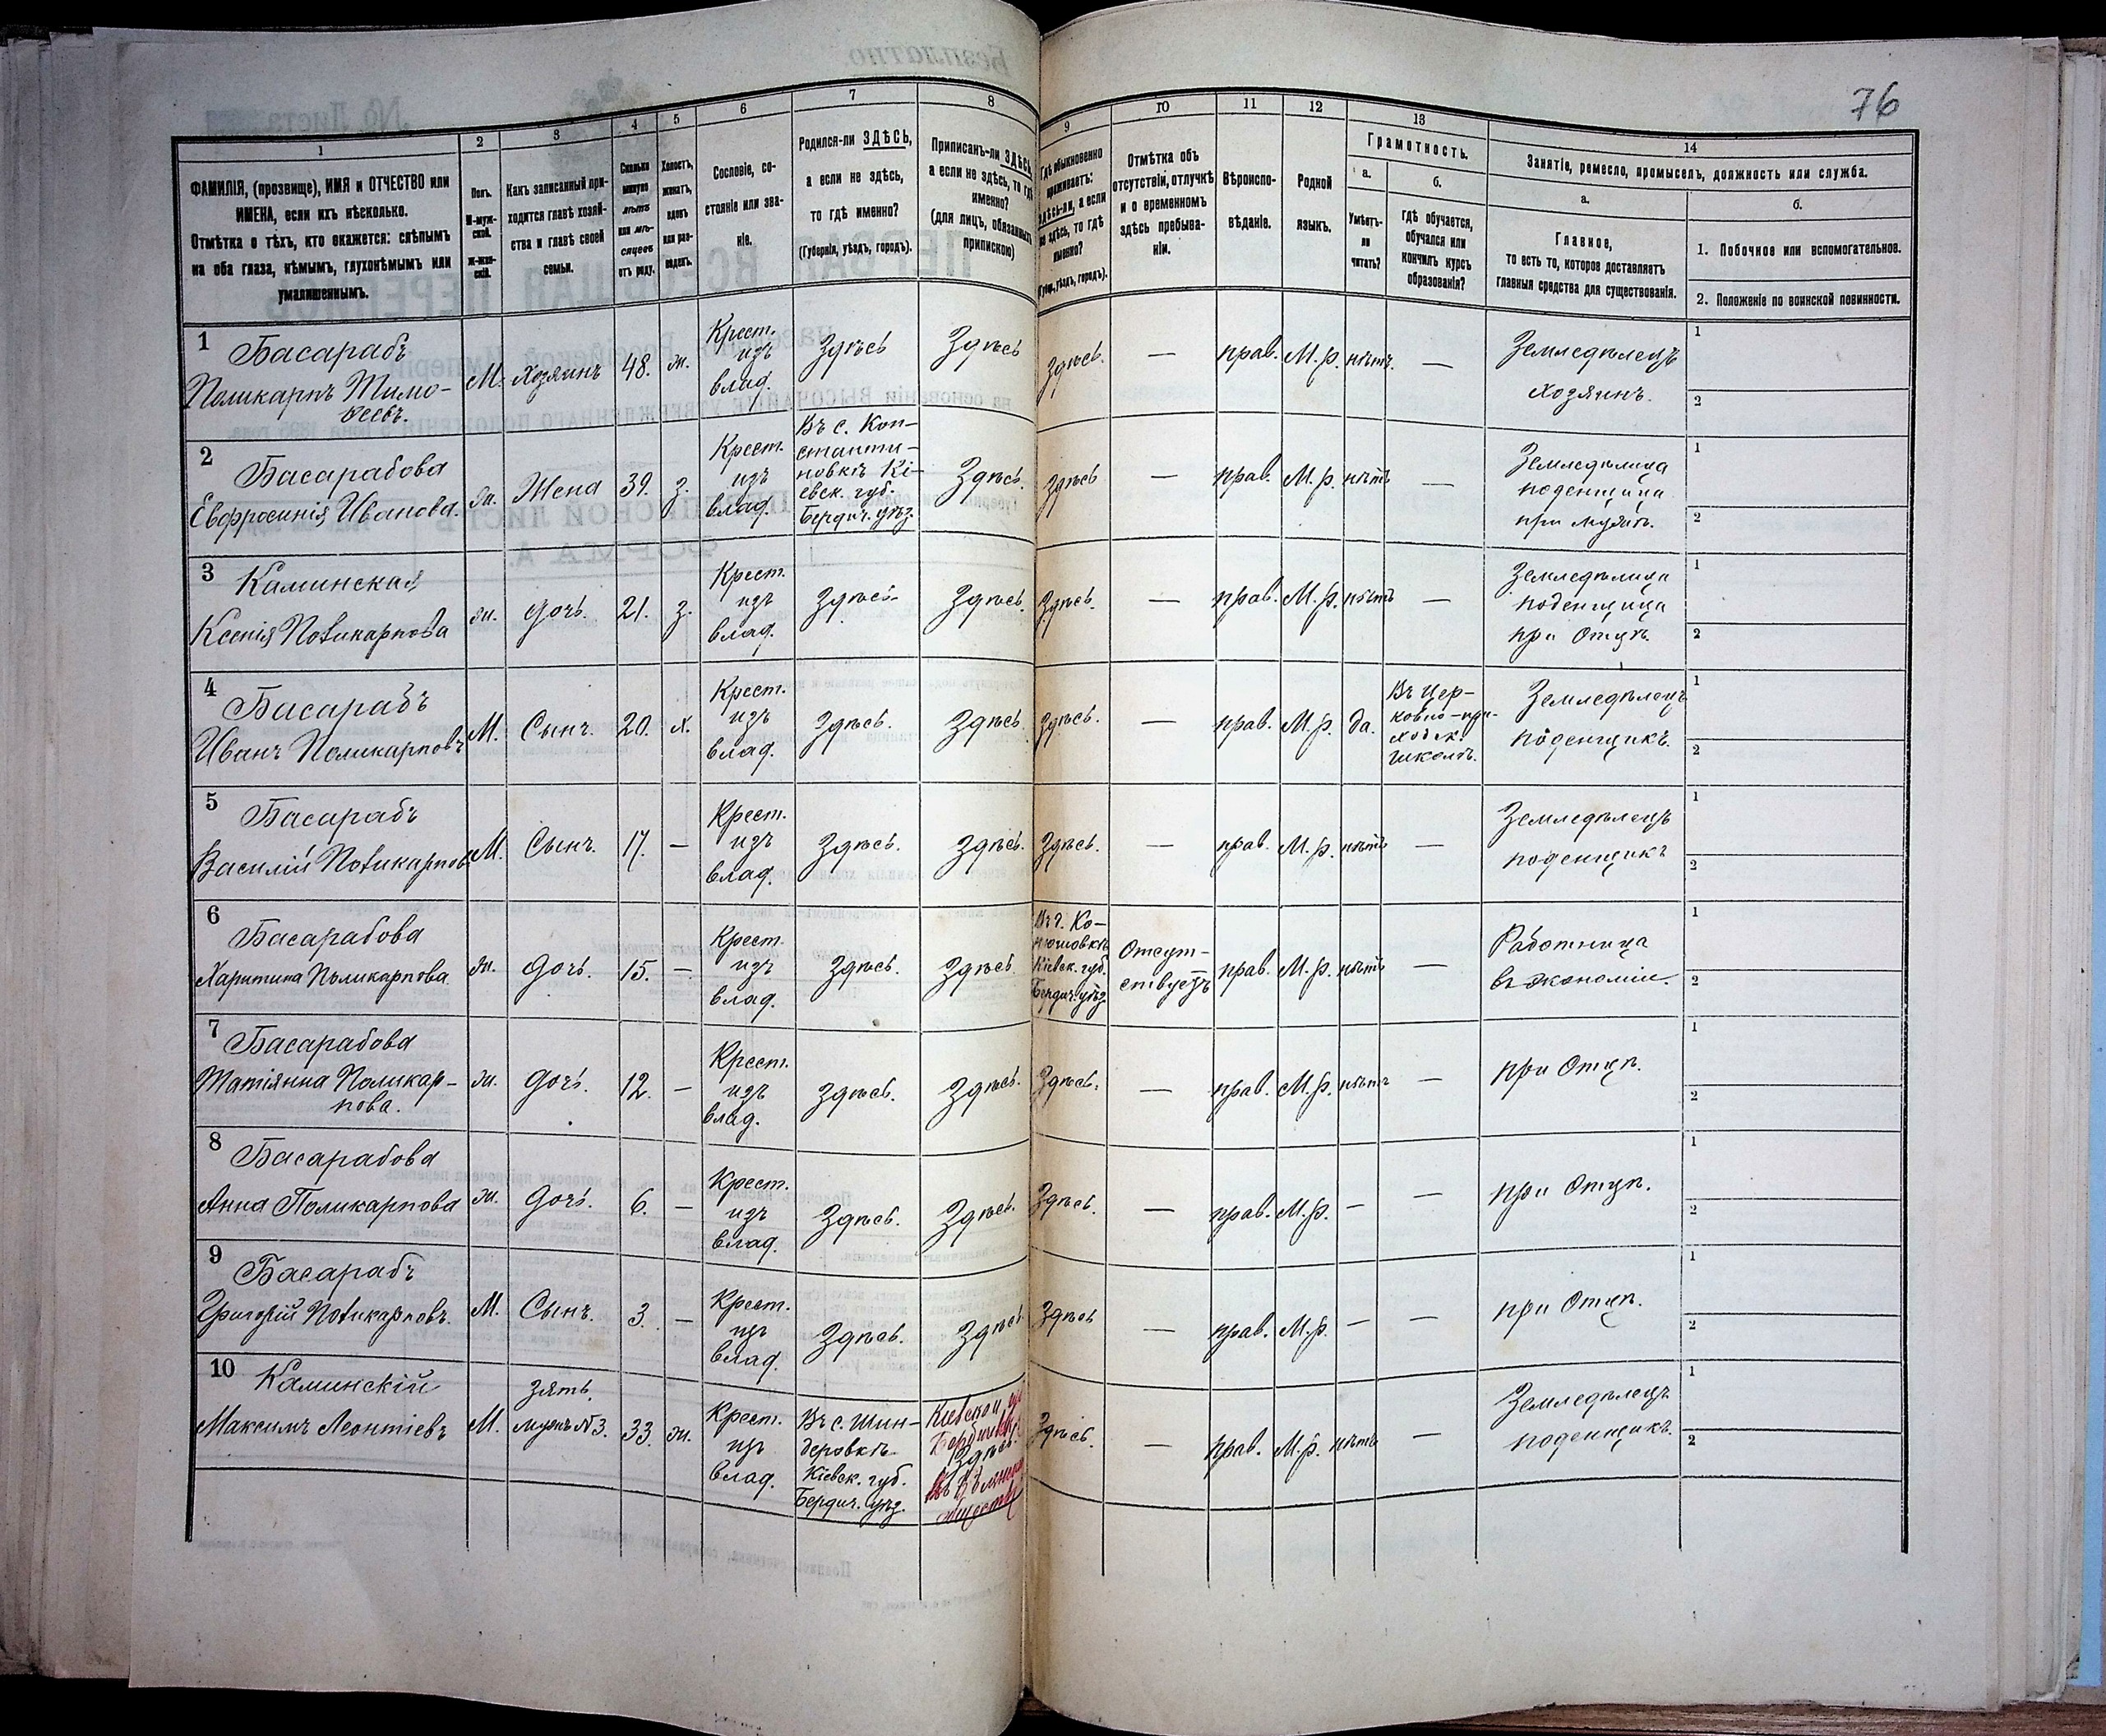 76
1
2
3
4
5
6
7
8
9
10
11
12
13
14
ФАМИЛІЯ, (прозвище), ИМЯ и ОТЧЕСТВО или
ИМЕНА, если ихъ нѣсколько.
Отмѣтка о тѣхъ, кто окажется: слѣпымъ
на оба глаза, нѣмымъ, глухонѣмымъ или
умалишеннымъ.
Полъ.
М-муж-
ской.
Ж-жен-
скій.
Какъ записанный при-
ходится главѣ хозяй-
ства и главѣ своей
семьи.
Сколько
минуло
лѣтъ
или мѣ-
сяцевъ
отъ роду.
Холостъ,
женатъ,
вдовъ
или раз-
веденъ.
Сословіе, со-
стояніе или зва-
ніе.
Родился-ли ЗДѢСЬ,
а если не здѣсь,
то гдѣ именно?
(Губернія, уѣздъ, городъ).
Приписанъ-ли ЗДѢСЬ,
а если не здѣсь, то гдѣ
именно?
(для лицъ, обязанныхъ
припискою)
Гдѣ обыкновенно
проживаетъ:
здѣсь-ли, а если
не здѣсь, то гдѣ
именно?
(Губ., уѣздъ, городъ).
Отмѣтка объ
отсутствіи, отлучкѣ
и о временномъ
здѣсь пребыва-
ніи.
Вѣроиспо-
вѣданіе.
Родной
языкъ.
Грамотность.
а.
Умѣетъ-
ли
читать?
б.
гдѣ обучается,
обучался или
кончилъ курсъ
образованія?
Занятіе, ремесло, промыселъ, должность или служба.
а.
Главное,
то есть то, которое доставляетъ
главныя средства для существованія.
б.
1. Побочное или вспомогательное.
2. Положеніе по воинской повинности.
1
Басарабъ
Поликарпъ Тимо-
веевъ.
М.
Хозяинъ
48.
ж.
Крест.
изъ
влад.
Здѣсь
Здѣсь
Здѣсь.
—
прав.
М.р.
нѣтъ.
—
Земледѣлецъ
хозяинъ.
1
2
2
Басарабова
Евфросинія Иванова.
ж.
Жена
39.
з.
Крест.
изъ
влад.
Въ с. Кон-
станти-
новкѣ Кі-
евск. губ.
Бердич. уѣз.
Здѣсь.
Здѣсь
—
прав.
М.р.
нѣтъ
—
Земледѣлица
поденщица
при мужѣ.
1
2
3
Каминская
Ксенія Поликарпова
ж.
дочь.
21.
з.
Крест.
изъ
влад.
Здѣсь
Здѣсь.
Здѣсь.
—
прав.
М.р.
нѣтъ
—
Земледѣлица
поденщица
при Отцѣ.
1
2
4
Басарабъ
Иванъ Поликарповъ
М.
Сынъ.
20.
х.
Крест.
изъ
влад.
Здѣсь.
Здѣсь.
Здѣсь.
—
прав.
М.р.
да.
Въ цер-
ковно-при-
ходск.
школѣ.
Земледѣлецъ
поденщикъ.
1
2
5
Басарабъ
Василій Поликарповъ
М.
Сынъ.
17.
—
Крест.
изъ
влад.
Здѣсь.
Здѣсь.
Здѣсь.
—
прав.
М.р.
нѣтъ
—
Земледѣлецъ
поденщикъ
1
2
6
Басарабова
Харитина Поликарпова
ж.
дочь.
15.
—
Крест.
изъ
влад.
Здѣсь.
Здѣсь
Кіевск. губ.
Бердич. уѣз.
Отсут-
ствуетъ
прав.
М.р.
нѣтъ
—
Работница
въ экономіи.
1
2
7
Басарабова
Татіянна Поликар-
пова.
ж.
дочь.
12.
—
Крест.
изъ
влад.
Здѣсь.
Здѣсь.
Здѣсь.
—
прав.
М.р.
нѣтъ
—
при Отцѣ.
1
2
8
Басарабова
Анна Поликарпова
ж.
дочь.
6.
—
Крест.
изъ
влад.
Здѣсь.
Здѣсь.
Здѣсь.
—
прав.
М.р.
—
—
при Отцѣ.
1
2
9
Басарабъ
Григорій Поликарповъ.
М.
Сынъ.
3.
—
Крест.
изъ
влад.
Здѣсь.
Здѣсь
Здѣсь
—
прав.
М.р.
—
—
при Отцѣ.
1
2
10
Каминскій
Максимъ Леонтіевъ
М.
зять.
мужъ №3.
33.
ж.
Крест.
изъ
влад.
Въ с. Шин-
деровкѣ
Кіевск. губ.
Бердич. уѣз.
Кіевской
Здѣсь.
Здѣсь.
—
прав.
М.р.
нѣтъ
—
Земледѣлецъ
поденщикъ.
1
2